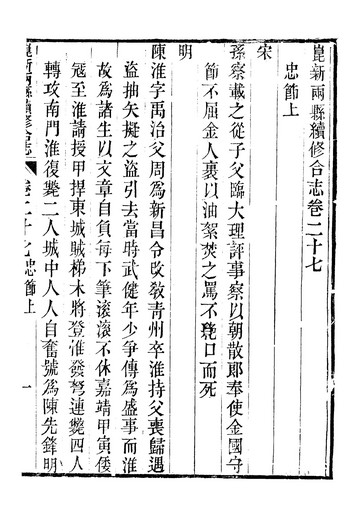 崑新兩縣續修合志卷二十七
忠節上
宋
孫察載之從子父臨大理評事察以朝散郎奉使金國守
節不屈金人裹以油絮焚之罵不絶口而死
明
陳淮字禹治父周爲新昌令改敎靑州卒淮持父喪歸遇
盜抽矢擬之盜引去當時武健年少爭傳爲盛事而淮
故爲諸生以文章自負每下筆滚滚不休嘉靖甲寅倭
冦至淮請授甲捍東城賊梯木將登淮發弩連斃四人
轉攻南門淮復斃二人城中人人自奮號爲陳先鋒明
崑新兩縣續修合志
卷二十七忠節上
一